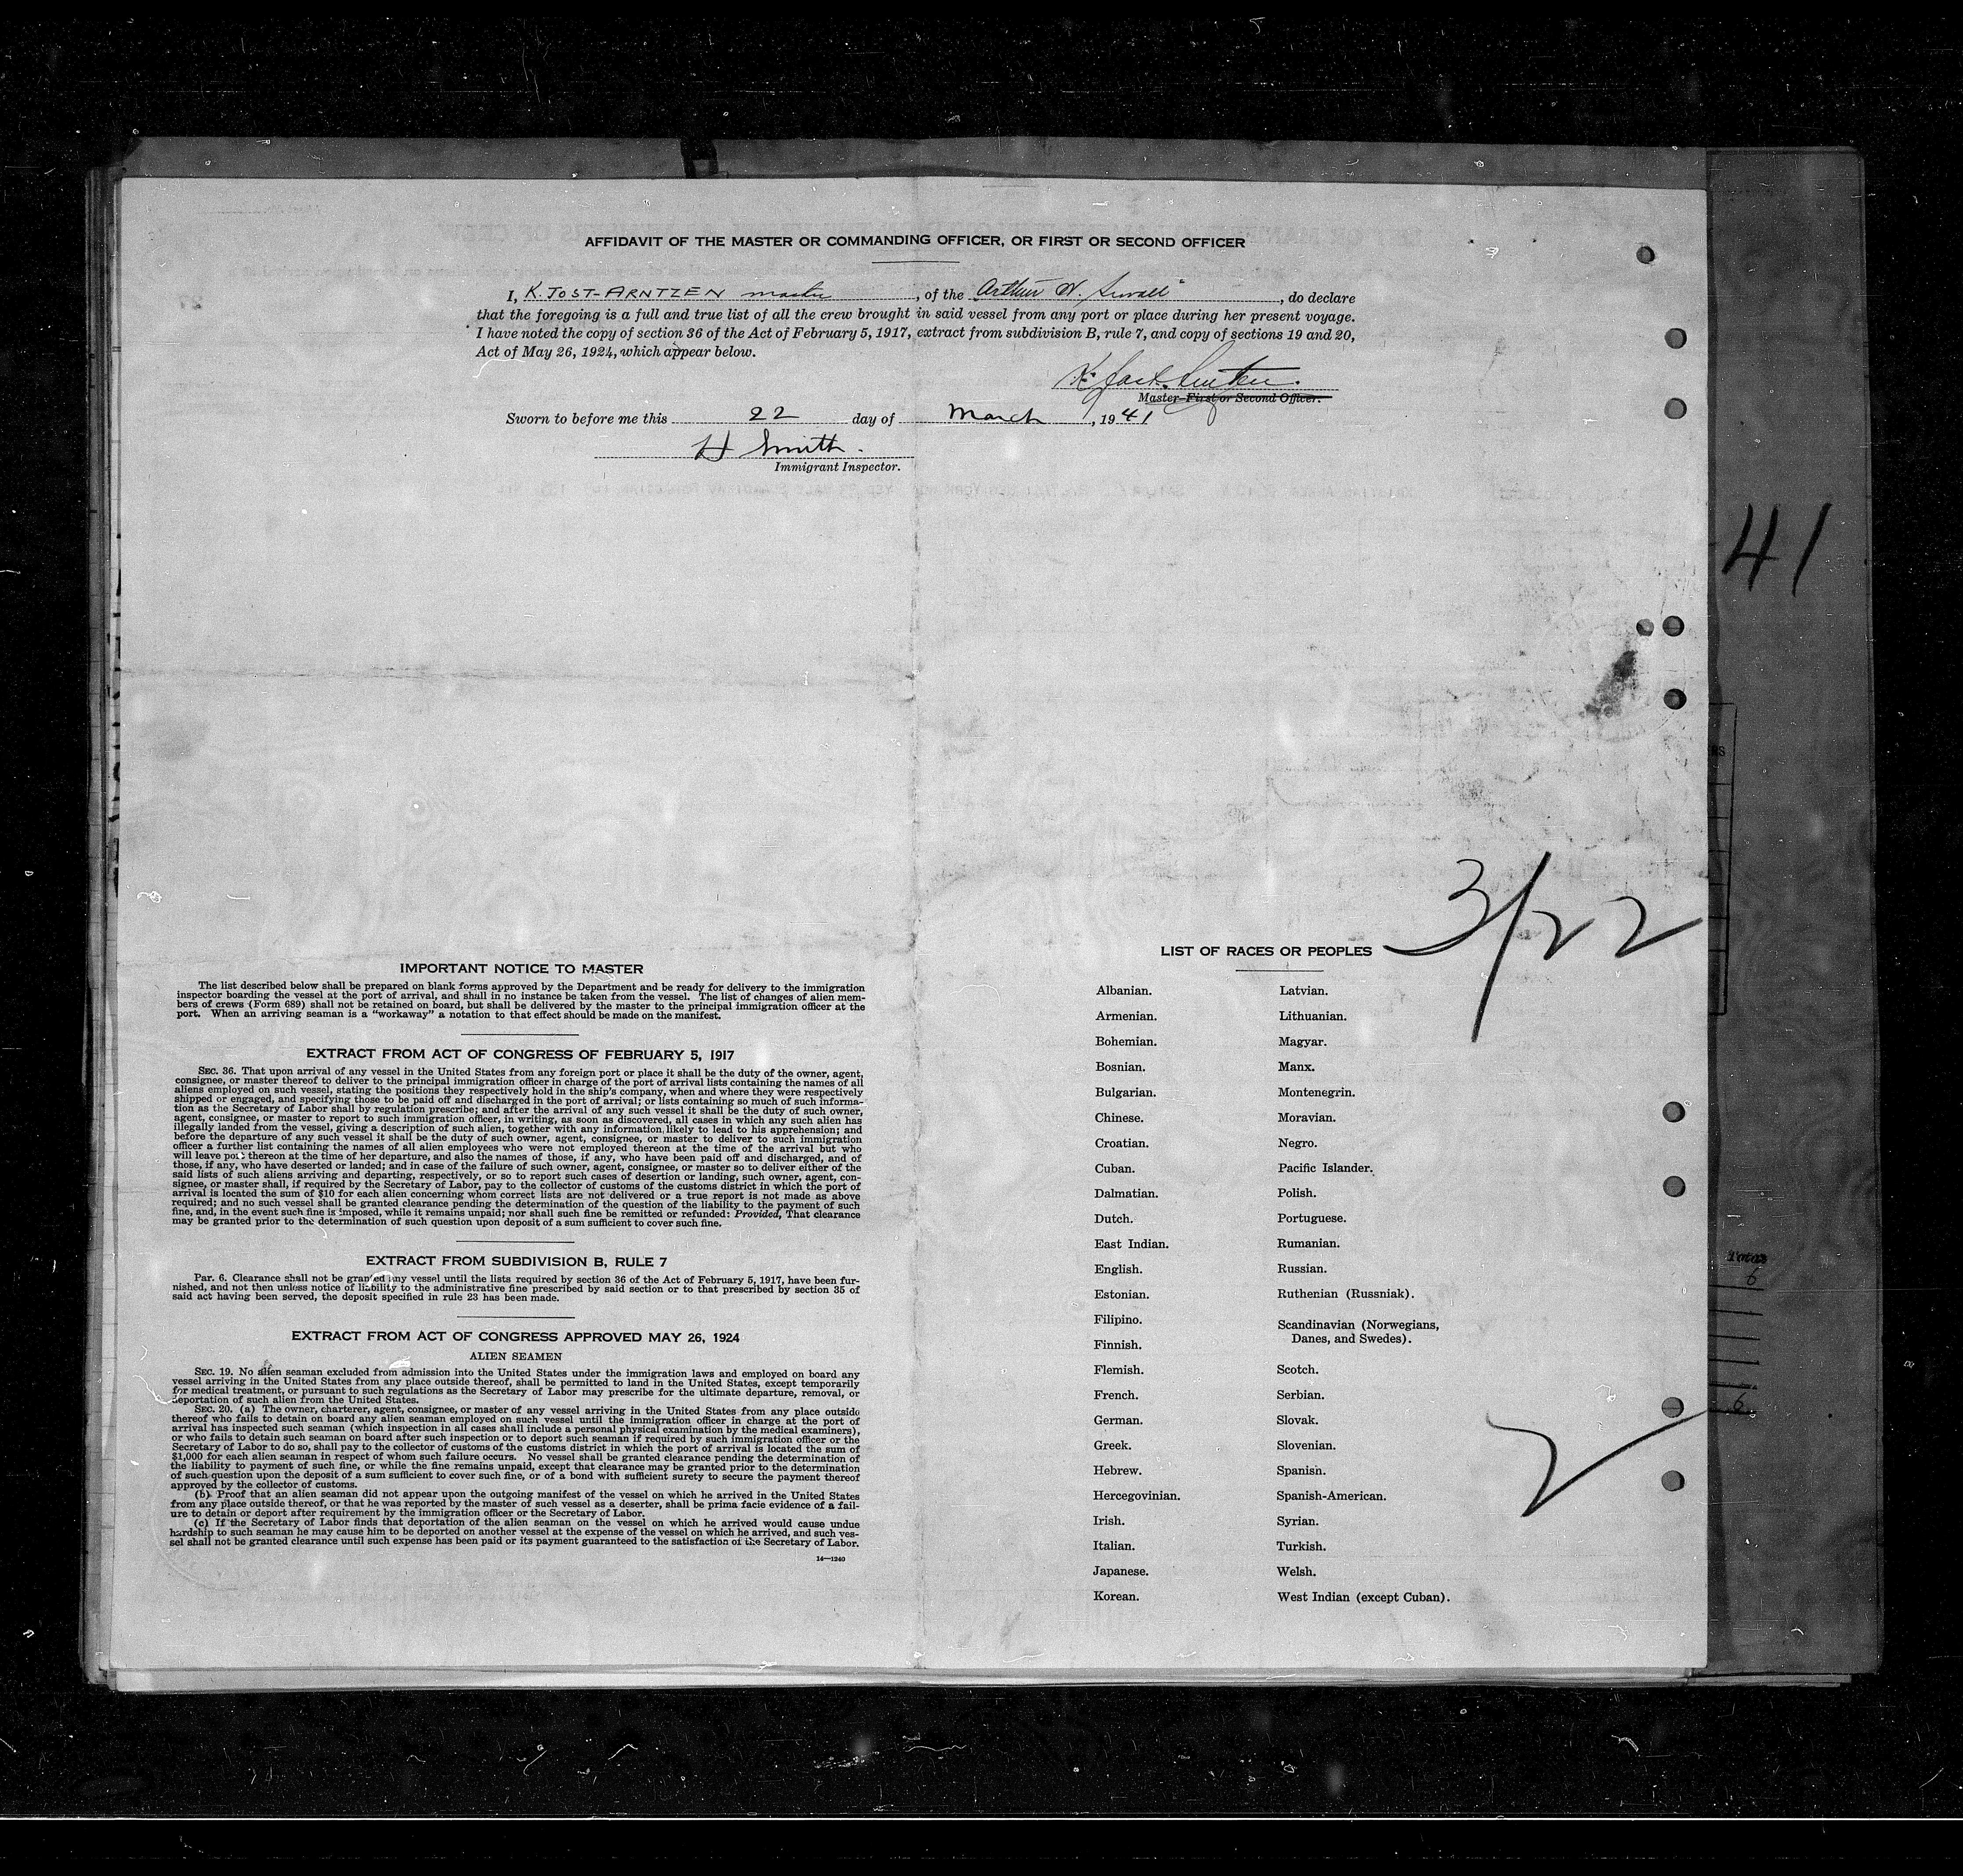 AFFIDAVIT OF THE MASTER OR COMMANDING OFFICER, OR FIRST OR SECOND OFFICER
I, K. JOST-ARNTZEN master, of the "Arthur W. Sewall", do declare
that the foregoing is a full and true list of all the crew brought in said vessel from any port or place during her present voyage.
I have noted the copy of section 36 of the Act of February 5, 1917, extract from subdivision B, rule 7, and copy of sections 19 and 20,
Act of May 26, 1924, which appear below.
Master—First or Second Officer.
Sworn to before me this 22 day of March, 1941
H Smith.
Immigrant Inspector.
41
3/22
IMPORTANT NOTICE TO MASTER
The list described below shall be prepared on blank forms approved by the Department and be ready for delivery to the immigration
inspector boarding the vessel at the port of arrival, and shall in no instance be taken from the vessel. The list of changes of alien mem-
bers of crews (Form 689) shall not be retained on board, but shall be delivered by the master to the principal immigration officer at the
port. When an arriving seaman is a "workaway" a notation to that effect should be made on the manifest.
EXTRACT FROM ACT OF CONGRESS OF FEBRUARY 5, 1917
SEC. 36. That upon arrival of any vessel in the United States from any foreign port or place it shall be the duty of the owner, agent,
consignee, or master thereof to deliver to the principal immigration officer in charge of the port of arrival lists containing the names of all
aliens employed on such vessel, stating the positions they respectively hold in the ship's company, when and where they were respectively
shipped or engaged, and specifying those to be paid off and discharged in the port of arrival; or lists containing so much of such informa-
tion as the Secretary of Labor shall by regulation prescribe; and after the arrival of any such vessel it shall be the duty of such owner,
agent, consignee, or master to report to such immigration officer, in writing, as soon as discovered, all cases in which any such alien has
illegally landed from the vessel, giving a description of such alien, together with any information likely to lead to his apprehension; and
before the departure of any such vessel it shall be the duty of such owner, agent, consignee, or master to deliver to such immigration
officer a further list containing the names of all alien employees who were not employed thereon at the time of the arrival but who
will leave port thereon at the time of her departure, and also the names of those, if any, who have been paid off and discharged, and of
those, if any, who have deserted or landed; and in case of the failure of such owner, agent, consignee, or master so to deliver either of the
said lists of such aliens arriving and departing, respectively, or so to report such cases of desertion or landing, such owner, agent, con-
signee, or master shall, if required by the Secretary of Labor, pay to the collector of customs of the customs district in which the port of
arrival is located the sum of $10 for each alien concerning whom correct lists are not delivered or a true report is not made as above
required; and no such vessel shall be granted clearance pending the determination of the question of the liability to the payment of such
fine, and, in the event such fine is imposed, while it remains unpaid; nor shall such fine be remitted or refunded: Provided, That clearance
may be granted prior to the determination of such question upon deposit of a sum sufficient to cover such fine.
EXTRACT FROM SUBDIVISION B, RULE 7
Par. 6. Clearance shall not be granted any vessel until the lists required by section 36 of the Act of February 5, 1917, have been fur-
nished, and not then unless notice of liability to the administrative fine prescribed by said section or to that prescribed by section 35 of
said act having been served, the deposit specified in rule 23 has been made.
EXTRACT FROM ACT OF CONGRESS APPROVED MAY 26, 1924
ALIEN SEAMEN
SEC. 19. No alien seaman excluded from admission into the United States under the immigration laws and employed on board any
vessel arriving in the United States from any place outside thereof, shall be permitted to land in the United States, except temporarily
for medical treatment, or pursuant to such regulations as the Secretary of Labor may prescribe for the ultimate departure, removal, or
deportation of such alien from the United States.
SEC. 20. (a) The owner, charterer, agent, consignee, or master of any vessel arriving in the United States from any place outside
thereof who fails to detain on board any alien seaman employed on such vessel until the immigration officer in charge at the port of
arrival has inspected such seaman (which inspection in all cases shall include a personal physical examination by the medical examiners),
or who fails to detain such seaman on board after such inspection or to deport such seaman if required by such immigration officer or the
Secretary of Labor to do so, shall pay to the collector of customs of the customs district in which the port of arrival is located the sum of
$1,000 for each alien seaman in respect of whom such failure occurs. No vessel shall be granted clearance pending the determination of
the liability to payment of such fine, or while the fine remains unpaid, except that clearance may be granted prior to the determination
of such question upon the deposit of a sum sufficient to cover such fine, or of a bond with sufficient surety to secure the payment thereof
approved by the collector of customs.
(b) Proof that an alien seaman did not appear upon the outgoing manifest of the vessel on which he arrived in the United States
from any place outside thereof, or that he was reported by the master of such vessel as a deserter, shall be prima facie evidence of a fail-
ure to detain or deport after requirement by the immigration officer or the Secretary of Labor.
(c) If the Secretary of Labor finds that deportation of the alien seaman on the vessel on which he arrived would cause undue
hardship to such seaman he may cause him to be deported on another vessel at the expense of the vessel on which he arrived, and such ves-
sel shall not be granted clearance until such expense has been paid or its payment guaranteed to the satisfaction of the Secretary of Labor.
14—1240
LIST OF RACES OR PEOPLES
Albanian.
Armenian.
Bohemian.
Bosnian.
Bulgarian.
Chinese.
Croatian.
Cuban.
Dalmatian.
Dutch.
East Indian.
English.
Estonian.
Filipino.
Finnish.
Flemish.
French.
German.
Greek.
Hebrew.
Hercegovinian.
Irish.
Italian.
Japanese.
Korean.
Latvian.
Lithuanian.
Magyar.
Manx.
Montenegrin.
Moravian.
Negro.
Pacific Islander.
Polish.
Portuguese.
Rumanian.
Russian.
Ruthenian (Russniak).
Scandinavian (Norwegians,
Danes, and Swedes).
Scotch.
Serbian.
Slovak.
Slovenian.
Spanish.
Spanish-American.
Syrian.
Turkish.
Welsh.
West Indian (except Cuban).
6
6